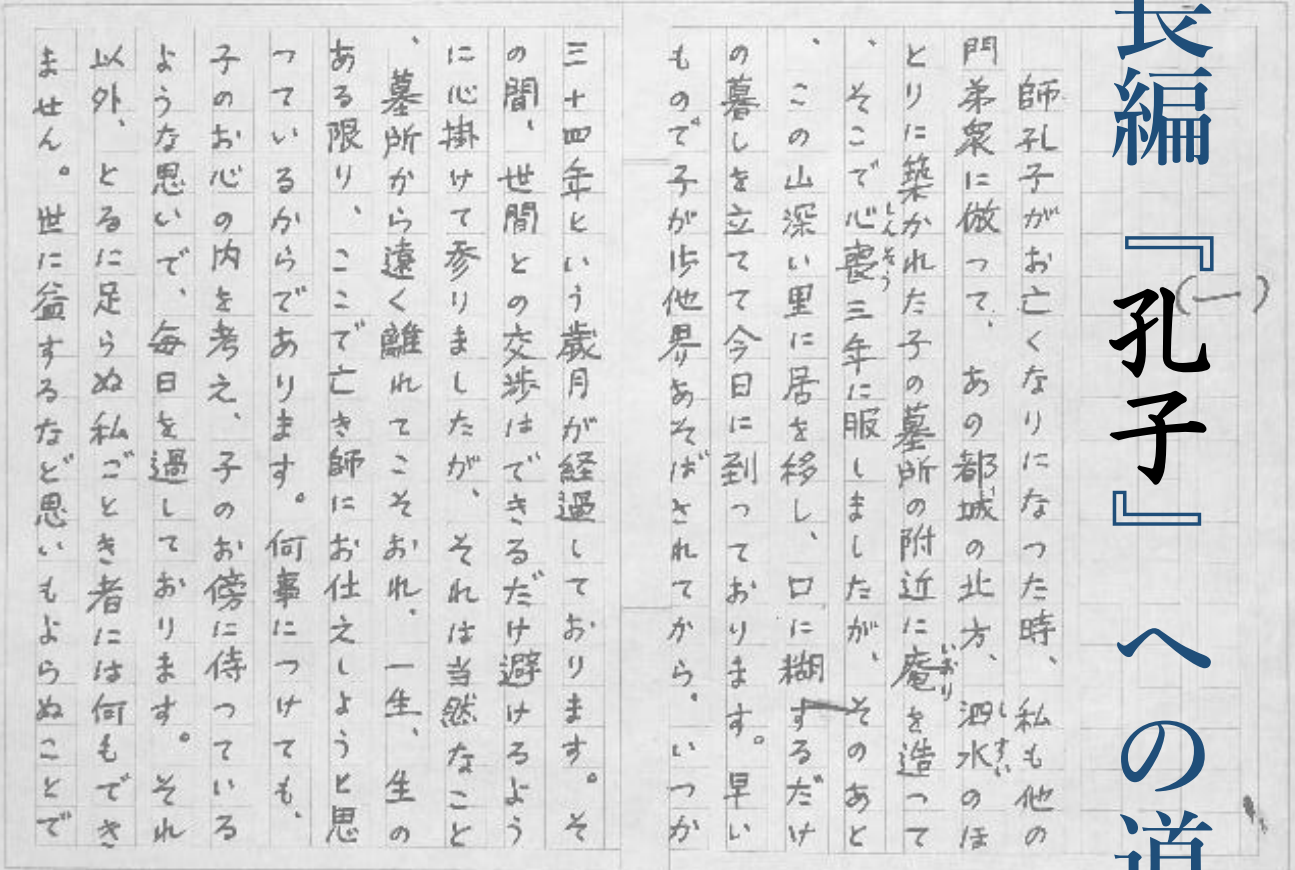 長編『孔子』への道
(一)
師孔子がお亡くなりになった時、私も他の
門弟衆に倣って、あの都城の北方、泗水のほ
しすい
とりに築かれた子の墓所の附近に庵を造って
いおり
、そこで心喪三年に服しましたが、そのあと
しんそう
、この山深い里に居を移し、口に糊するだけ
の暮しを立てて今日に到っております。早い
もので子が歩他界あそばされてから、いつか
三十四年という歳月が経過しております。そ
の間、世間との交渉はできるだけ避けるよう
に心掛けて参りましたが、それは当然なこと
、墓所から遠く離れてこそおれ、一生、生の
ある限り、ここで亡き師にお仕えしようと思
っているからであります。何事につけても、
子のお心の内を考え、子のお傍に侍っている
ような思いで、毎日を過しております。それ
以外、とるに足らぬ私ごとき者には何もでき
ません。世に益するなど思いもよらぬことで